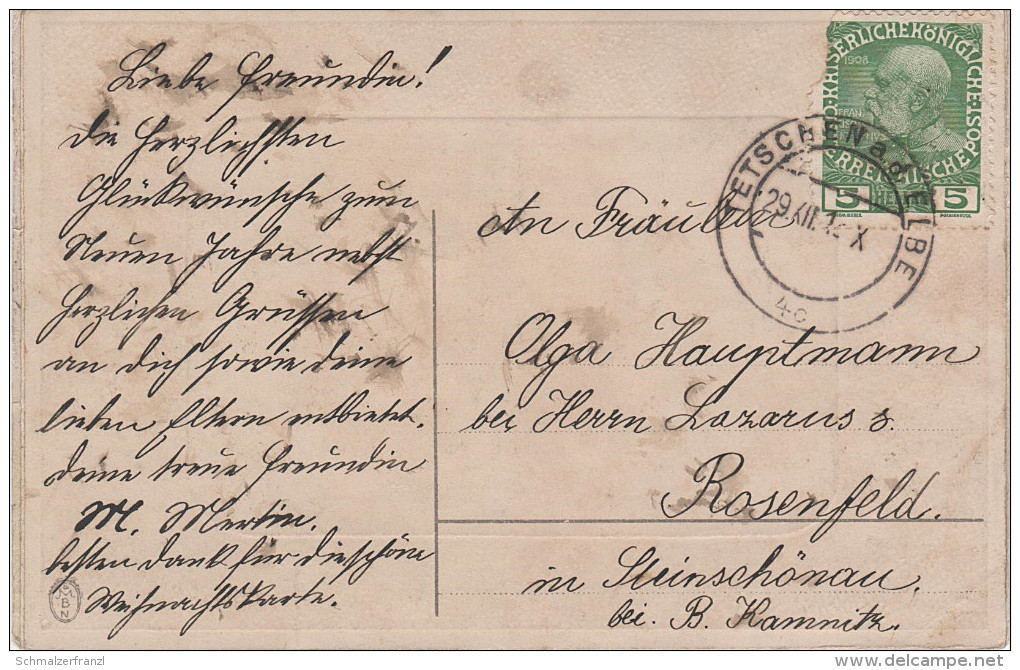 Liebe Freundin!
die herzlichsten
Glückwünsche zum
Neuen Jahre nebst
herzlichen Grüssen
an dich sowie deine
lieben Eltern entbietet.
deine treue Freundin
M. Mertin.
besten Dank für die schöne
Weihnachtskarte.
BN
KAISERLICHEKÖNIGLICHE
ÖSTERREICHISCHEPOST
1908
5 5
TETSCHEN a.d. ELBE
29.XII. X
4c
An Fräulein
Olga Hauptmann
bei Herrn Lazarus &
Rosenfeld.
in Steinschönau.
bei. B. Kamnitz.
Schmalzerfranzl